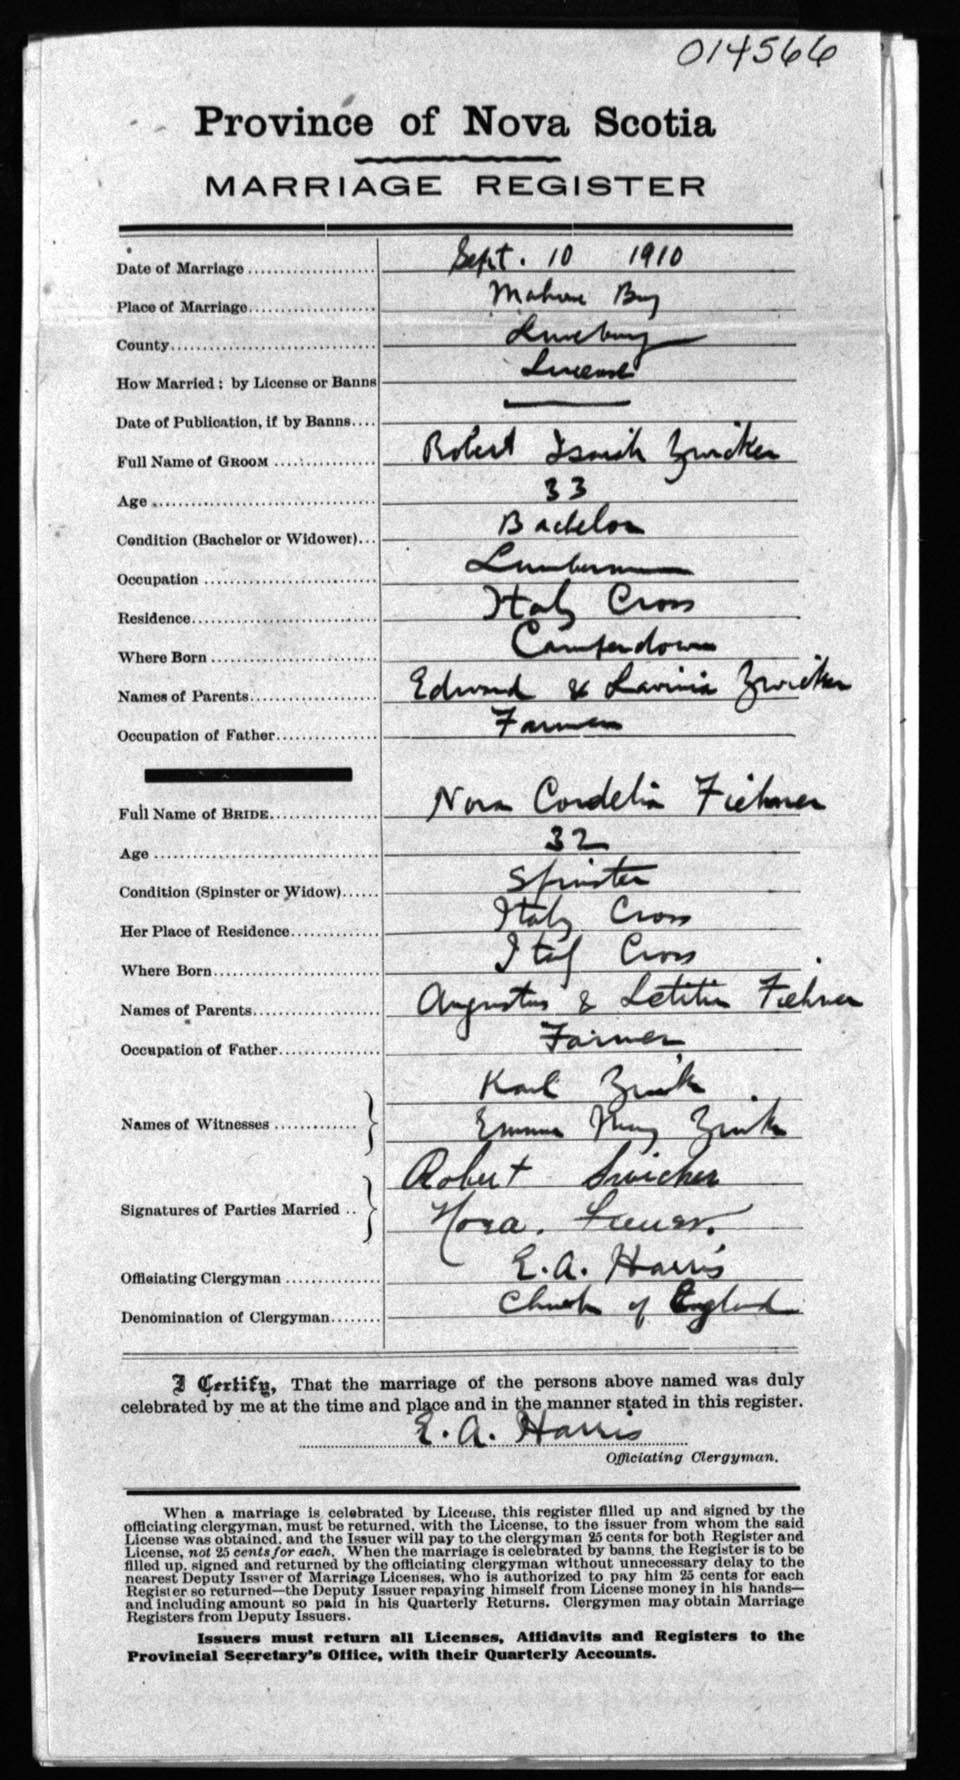 014566
Province of Nova Scotia
MARRIAGE REGISTER
Date of Marriage .................... Sept. 10 1910
Place of Marriage.................... Mahone Bay
County................................ Lunenburg
How Married: by License or Banns License
Date of Publication, if by Banns.... ———
Full Name of GROOM ................ Robert Isaiah Zwicker
Age .................................. 33
Condition (Bachelor or Widower)... Bachelor
Occupation ........................... Lumberman
Residence............................. Italy Cross
Where Born ........................... Camperdown
Names of Parents..................... Edward & Lavinia Zwicker
Occupation of Father................. Farmer
Full Name of BRIDE................... Nora Cordelia Fiehner
Age .................................. 32
Condition (Spinster or Widow)...... Spinster
Her Place of Residence............... Italy Cross
Where Born........................... Italy Cross
Names of Parents..................... Augustus & Letitia Fiehner
Occupation of Father................. Farmer
Karl Zwick
Names of Witnesses ..............
Emma Zwick
Robert Swicker
Signatures of Parties Married ..
Nora.
Officiating Clergyman ............... E. A. Harris
Denomination of Clergyman........ Church of England
I Certify, That the marriage of the persons above named was duly
celebrated by me at the time and place and in the manner stated in this register.
E. A. Harris
Officiating Clergyman.
When a marriage is celebrated by License, this register filled up and signed by the
officiating clergyman, must be returned, with the License, to the issuer from whom the said
License was obtained, and the Issuer will pay to the clergyman 25 cents for both Register and
License, not 25 cents for each. When the marriage is celebrated by banns, the Register is to be
filled up, signed and returned by the officiating clergyman without unnecessary delay to the
nearest Deputy Issuer of Marriage Licenses, who is authorized to pay him 25 cents for each
Register so returned—the Deputy Issuer repaying himself from License money in his hands—
and including amount so paid in his Quarterly Returns. Clergymen may obtain Marriage
Registers from Deputy Issuers.
Issuers must return all Licenses, Affidavits and Registers to the
Provincial Secretary's Office, with their Quarterly Accounts.